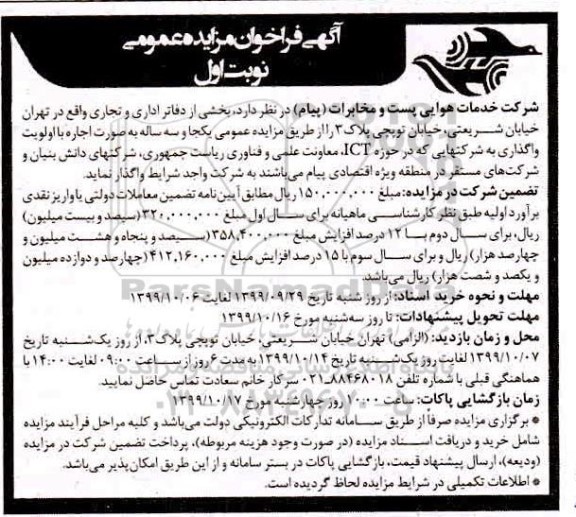 آگهی فراخوان مزایده عمومی
نوبت اول
شرکت خدمات هوایی پست و مخابرات (پیام) در نظر دارد، بخشی از دفاتر اداری و تجاری واقع در تهران
خیابان شریعتی، خیابان توپچی پلاک۳ را از طریق مزایده عمومی یکجا و سه ساله به صورت اجاره با اولویت
واگذاری به شرکتهایی که در حوزه ICT، معاونت علمی و فناوری ریاست جمهوری، شرکتهای دانش بنیان و
شرکت‌های مستقر در منطقه ویژه اقتصادی پیام می‌باشند به شرکت واجد شرایط واگذار نماید.
تضمین شرکت در مزایده: مبلغ ۱۵۰،۰۰۰،۰۰۰ ریال مطابق آیین نامه تضمین معاملات دولتی یا واریز نقدی
برآورد اولیه طبق نظر کارشناسی ماهیانه برای سال اول مبلغ ۳۲۰،۰۰۰،۰۰۰ (سیصد و بیست میلیون)
ریال، برای سال دوم با ۱۲ درصد افزایش مبلغ ۳۵۸،۴۰۰،۰۰۰ (سیصد و پنجاه و هشت میلیون و
چهارصد هزار) ریال و برای سال سوم با ۱۵ درصد افزایش مبلغ ۴۱۲،۱۶۰،۰۰۰ (چهارصد و دوازده میلیون
و یکصد و شصت هزار) ریال می‌باشد.
مهلت و نحوه خرید اسناد: از روز شنبه تاریخ ۱۳۹۹/۰۹/۲۹ لغایت ۱۳۹۹/۱۰/۰۶
مهلت تحویل پیشنهادات: تا روز سه‌شنبه مورخ ۱۳۹۹/۱۰/۱۶
محل و زمان بازدید: (الزامی) تهران خیابان شریعتی، خیابان توپچی پلاک۳، از روز یک‌شنبه تاریخ
۱۳۹۹/۱۰/۰۷ لغایت روز یک‌شنبه تاریخ ۱۳۹۹/۱۰/۱۴ به مدت ۶ روز از ساعت ۰۹:۰۰ لغایت ۱۴:۰۰ با
هماهنگی قبلی با شماره تلفن ۸۸۴۶۸۰۱۸-۰۲۱ سرکار خانم سعادت تماس حاصل نمایید.
زمان بازگشایی پاکات: ساعت ۱۰:۰۰ روز چهارشنبه مورخ ۱۳۹۹/۱۰/۱۷
* برگزاری مزایده صرفاً از طریق سامانه تدارکات الکترونیکی دولت می‌باشد و کلیه مراحل فرآیند مزایده
شامل خرید و دریافت اسناد مزایده (در صورت وجود هزینه مربوطه)، پرداخت تضمین شرکت در مزایده
(ودیعه)، ارسال پیشنهاد قیمت، بازگشایی پاکات در بستر سامانه و از این طریق امکان پذیر می‌باشد.
* اطلاعات تکمیلی در شرایط مزایده لحاظ گردیده است.
ParsNamadData